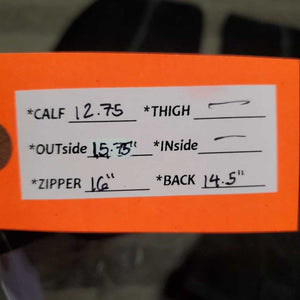 *CALF 12.75 *THIGH —
*OUTside 15.75" *INside —
*ZIPPER 16" *BACK 14.5"